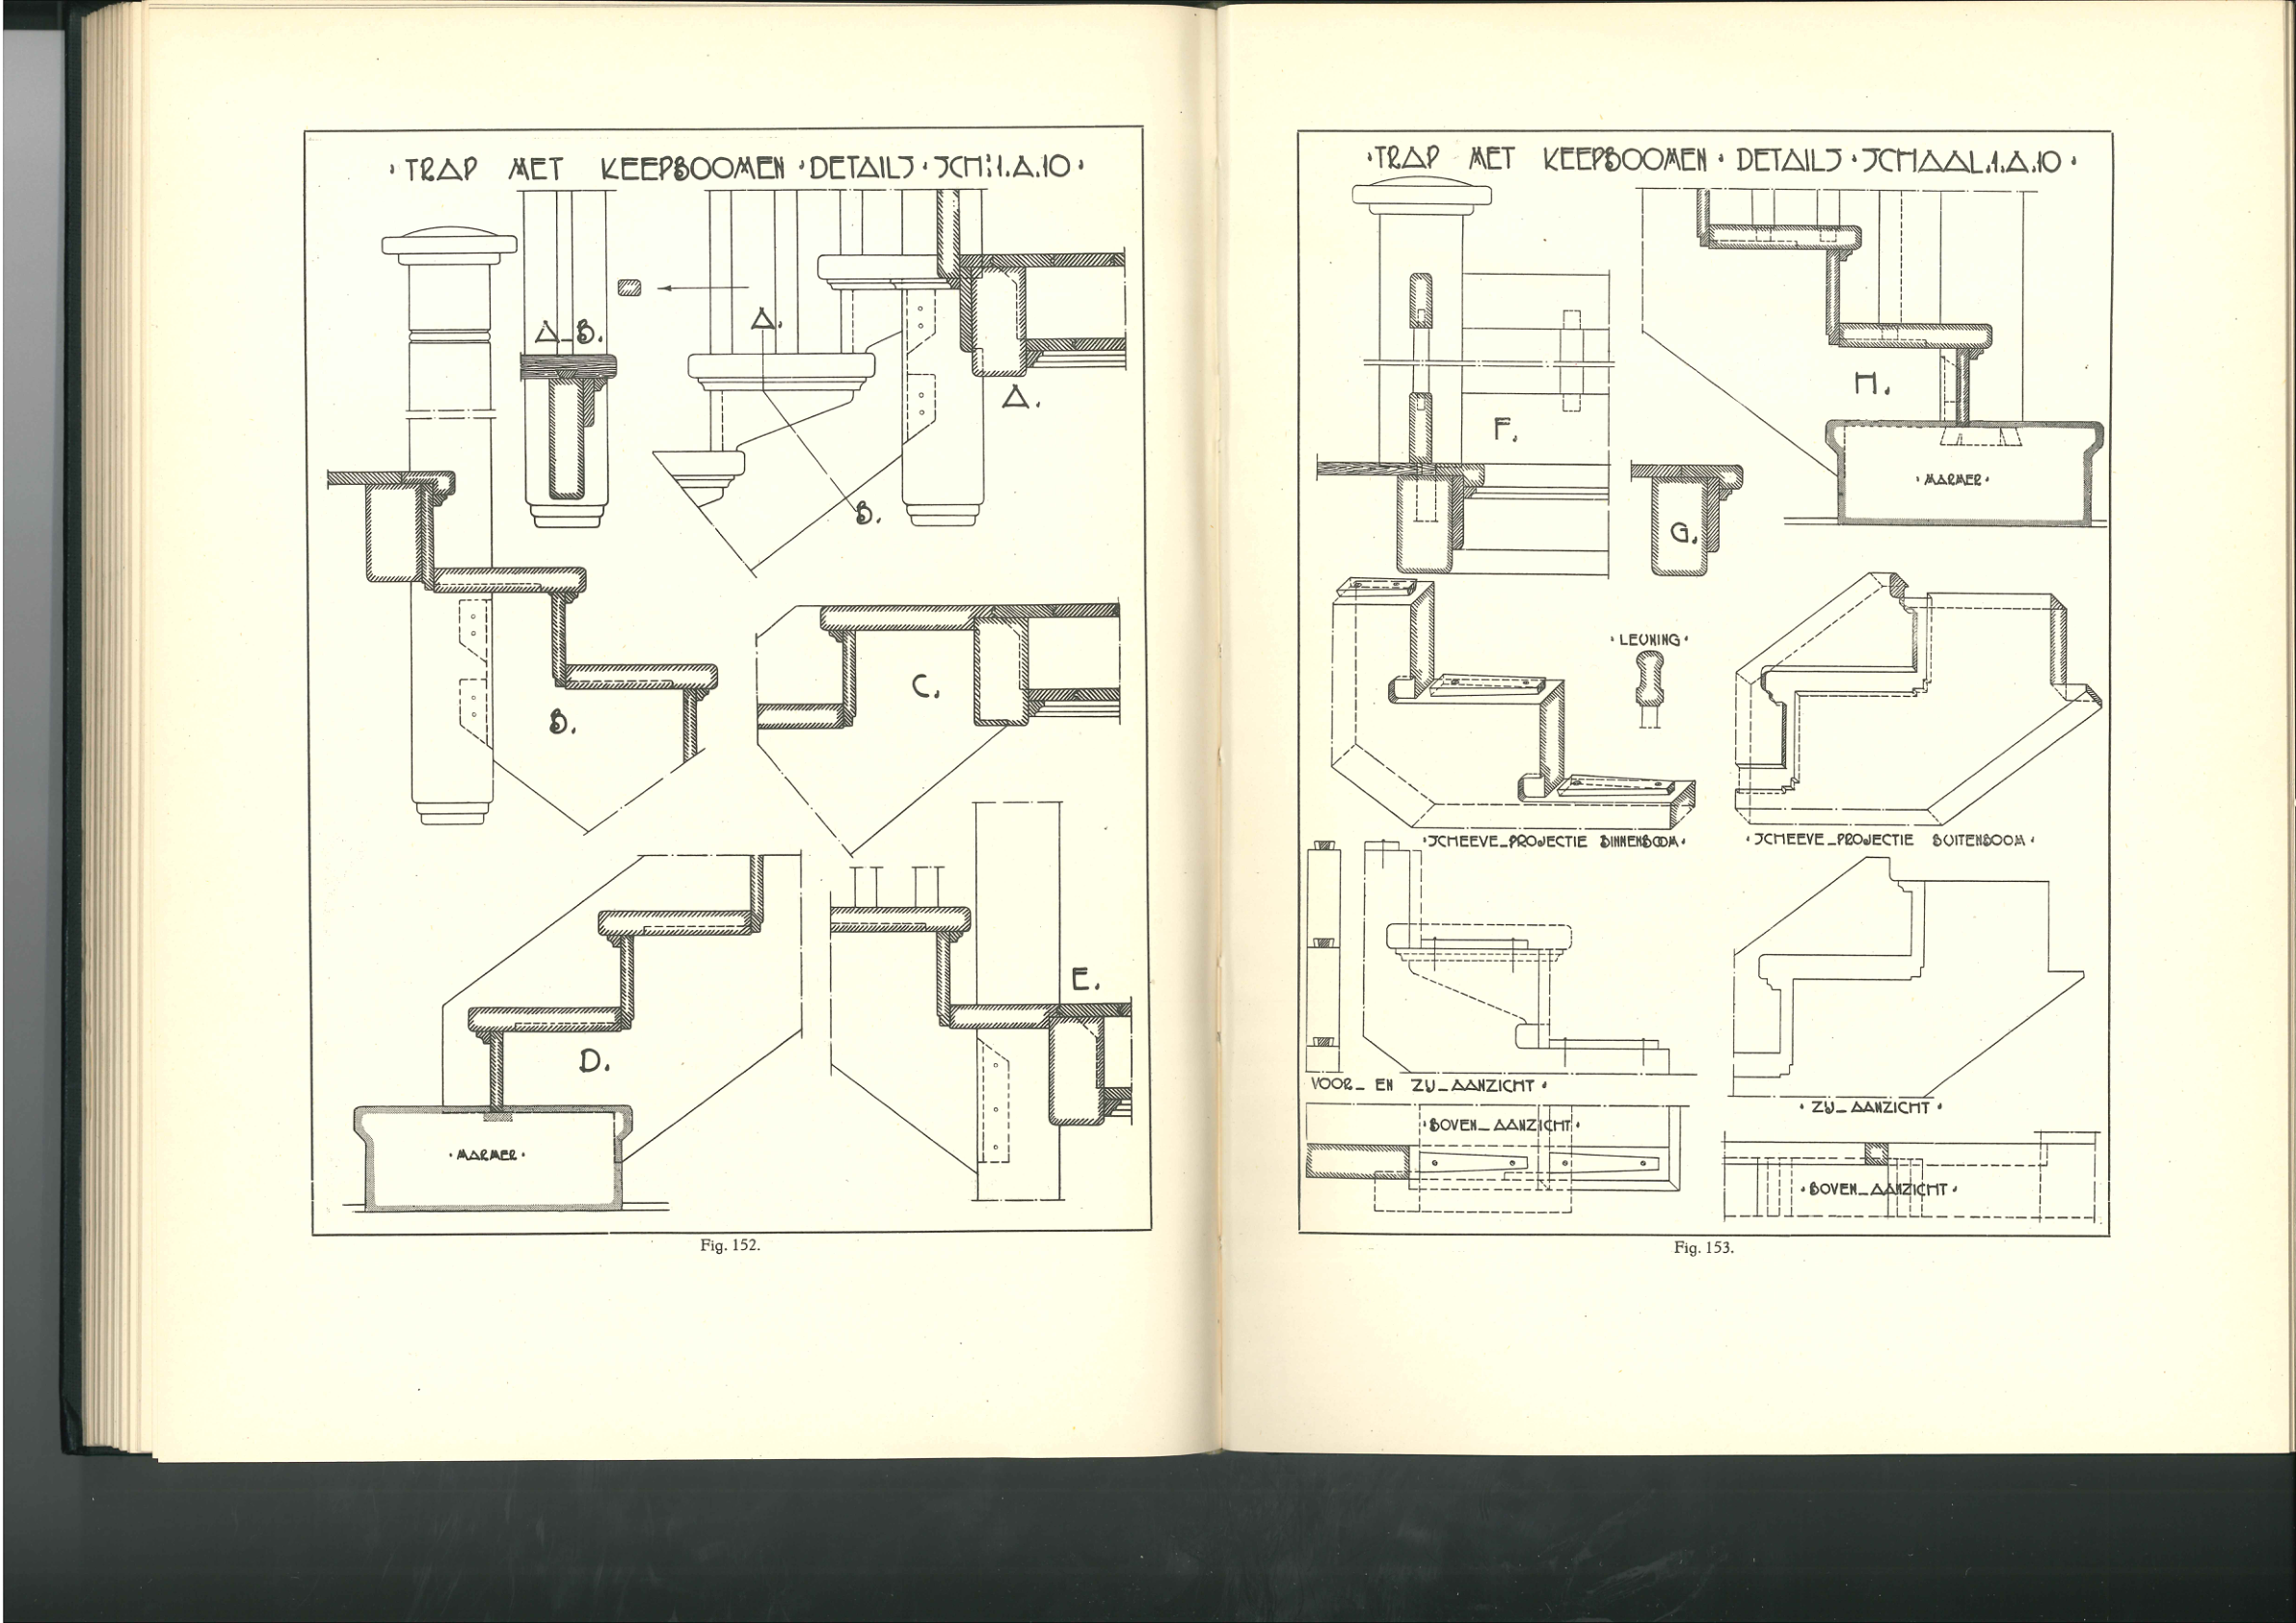 · TRAP MET KEEPBOOMEN · DETAILS · SCH: 1.A.10 ·
A_B.
A.
A.
B.
B.
C.
D.
E.
· MARMER ·
Fig. 152.
· TRAP MET KEEPBOOMEN · DETAILS · SCHAAL.1.A.10 ·
F.
G.
H.
· MARMER ·
· LEUNING ·
· SCHEEVE_PROJECTIE BINNENBOOM ·
· SCHEEVE_PROJECTIE BUITENBOOM ·
VOOR_ EN ZIJ_AANZICHT ·
· ZIJ_AANZICHT ·
· BOVEN_AANZICHT ·
· BOVEN_AANZICHT ·
Fig. 153.